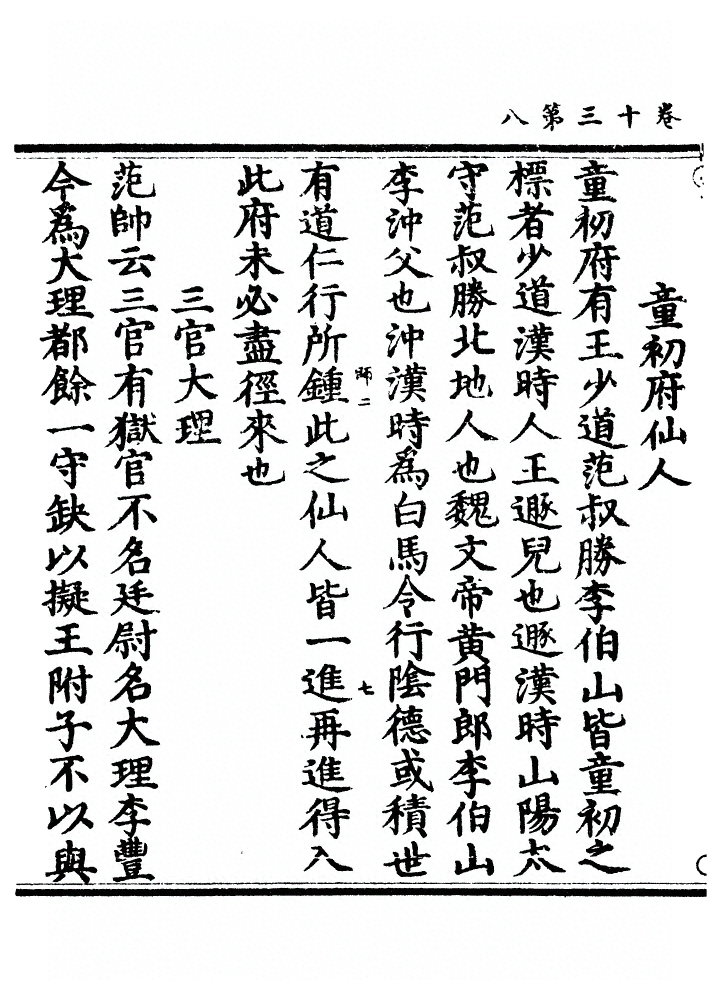 卷十三第八
童初府仙人
童初府有王少道范叔勝李伯山皆童初之
標者少道漢時人王遯兒也遯漢時山陽太
守范叔勝北地人也魏文帝黄門郎李伯山
李沖父也沖漢時爲白馬令行陰德或積世
有道仁行所鍾此之仙人皆一進再進得入
師二
七
此府未必盡徑來也
三官大理
范帥云三官有獄官不名廷尉名大理李豐
今爲大理都餘一守缺以擬王附子不以與